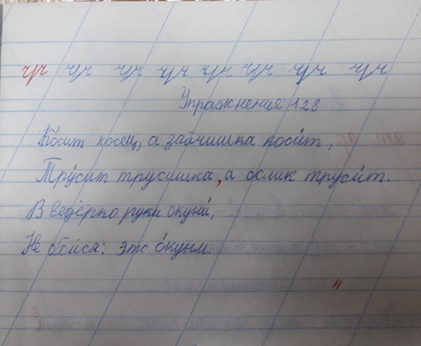 чу чу чу чу чу чу чу чу
Упражнение 128
Ко́сит косец, а зайчишка коси́т,
Тру́сит трусишка, а ослик труси́т.
В ведёрко руки окуни́,
Не бойся: это о́куни.
4